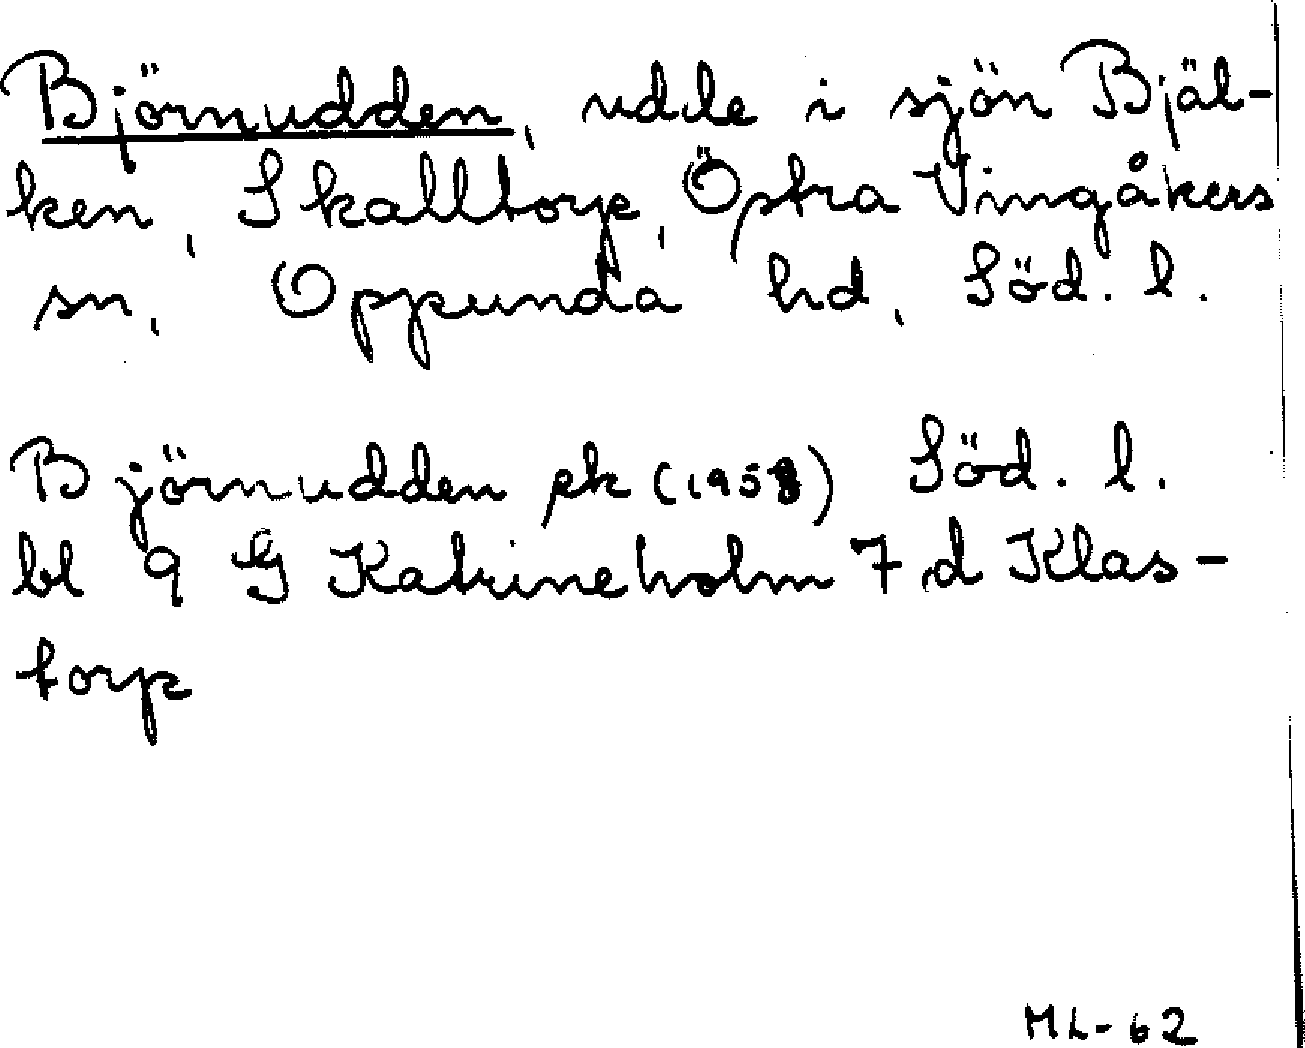 Björnudden, udde i sjön Bjäl-
ken, Skalltorp, Östra Vingåkers
sn, Oppunda hd, Söd. l.
Björnudden ek (1958) Söd. l.
bl 9 G Katrineholm 7 d Klas-
torp
ML-62